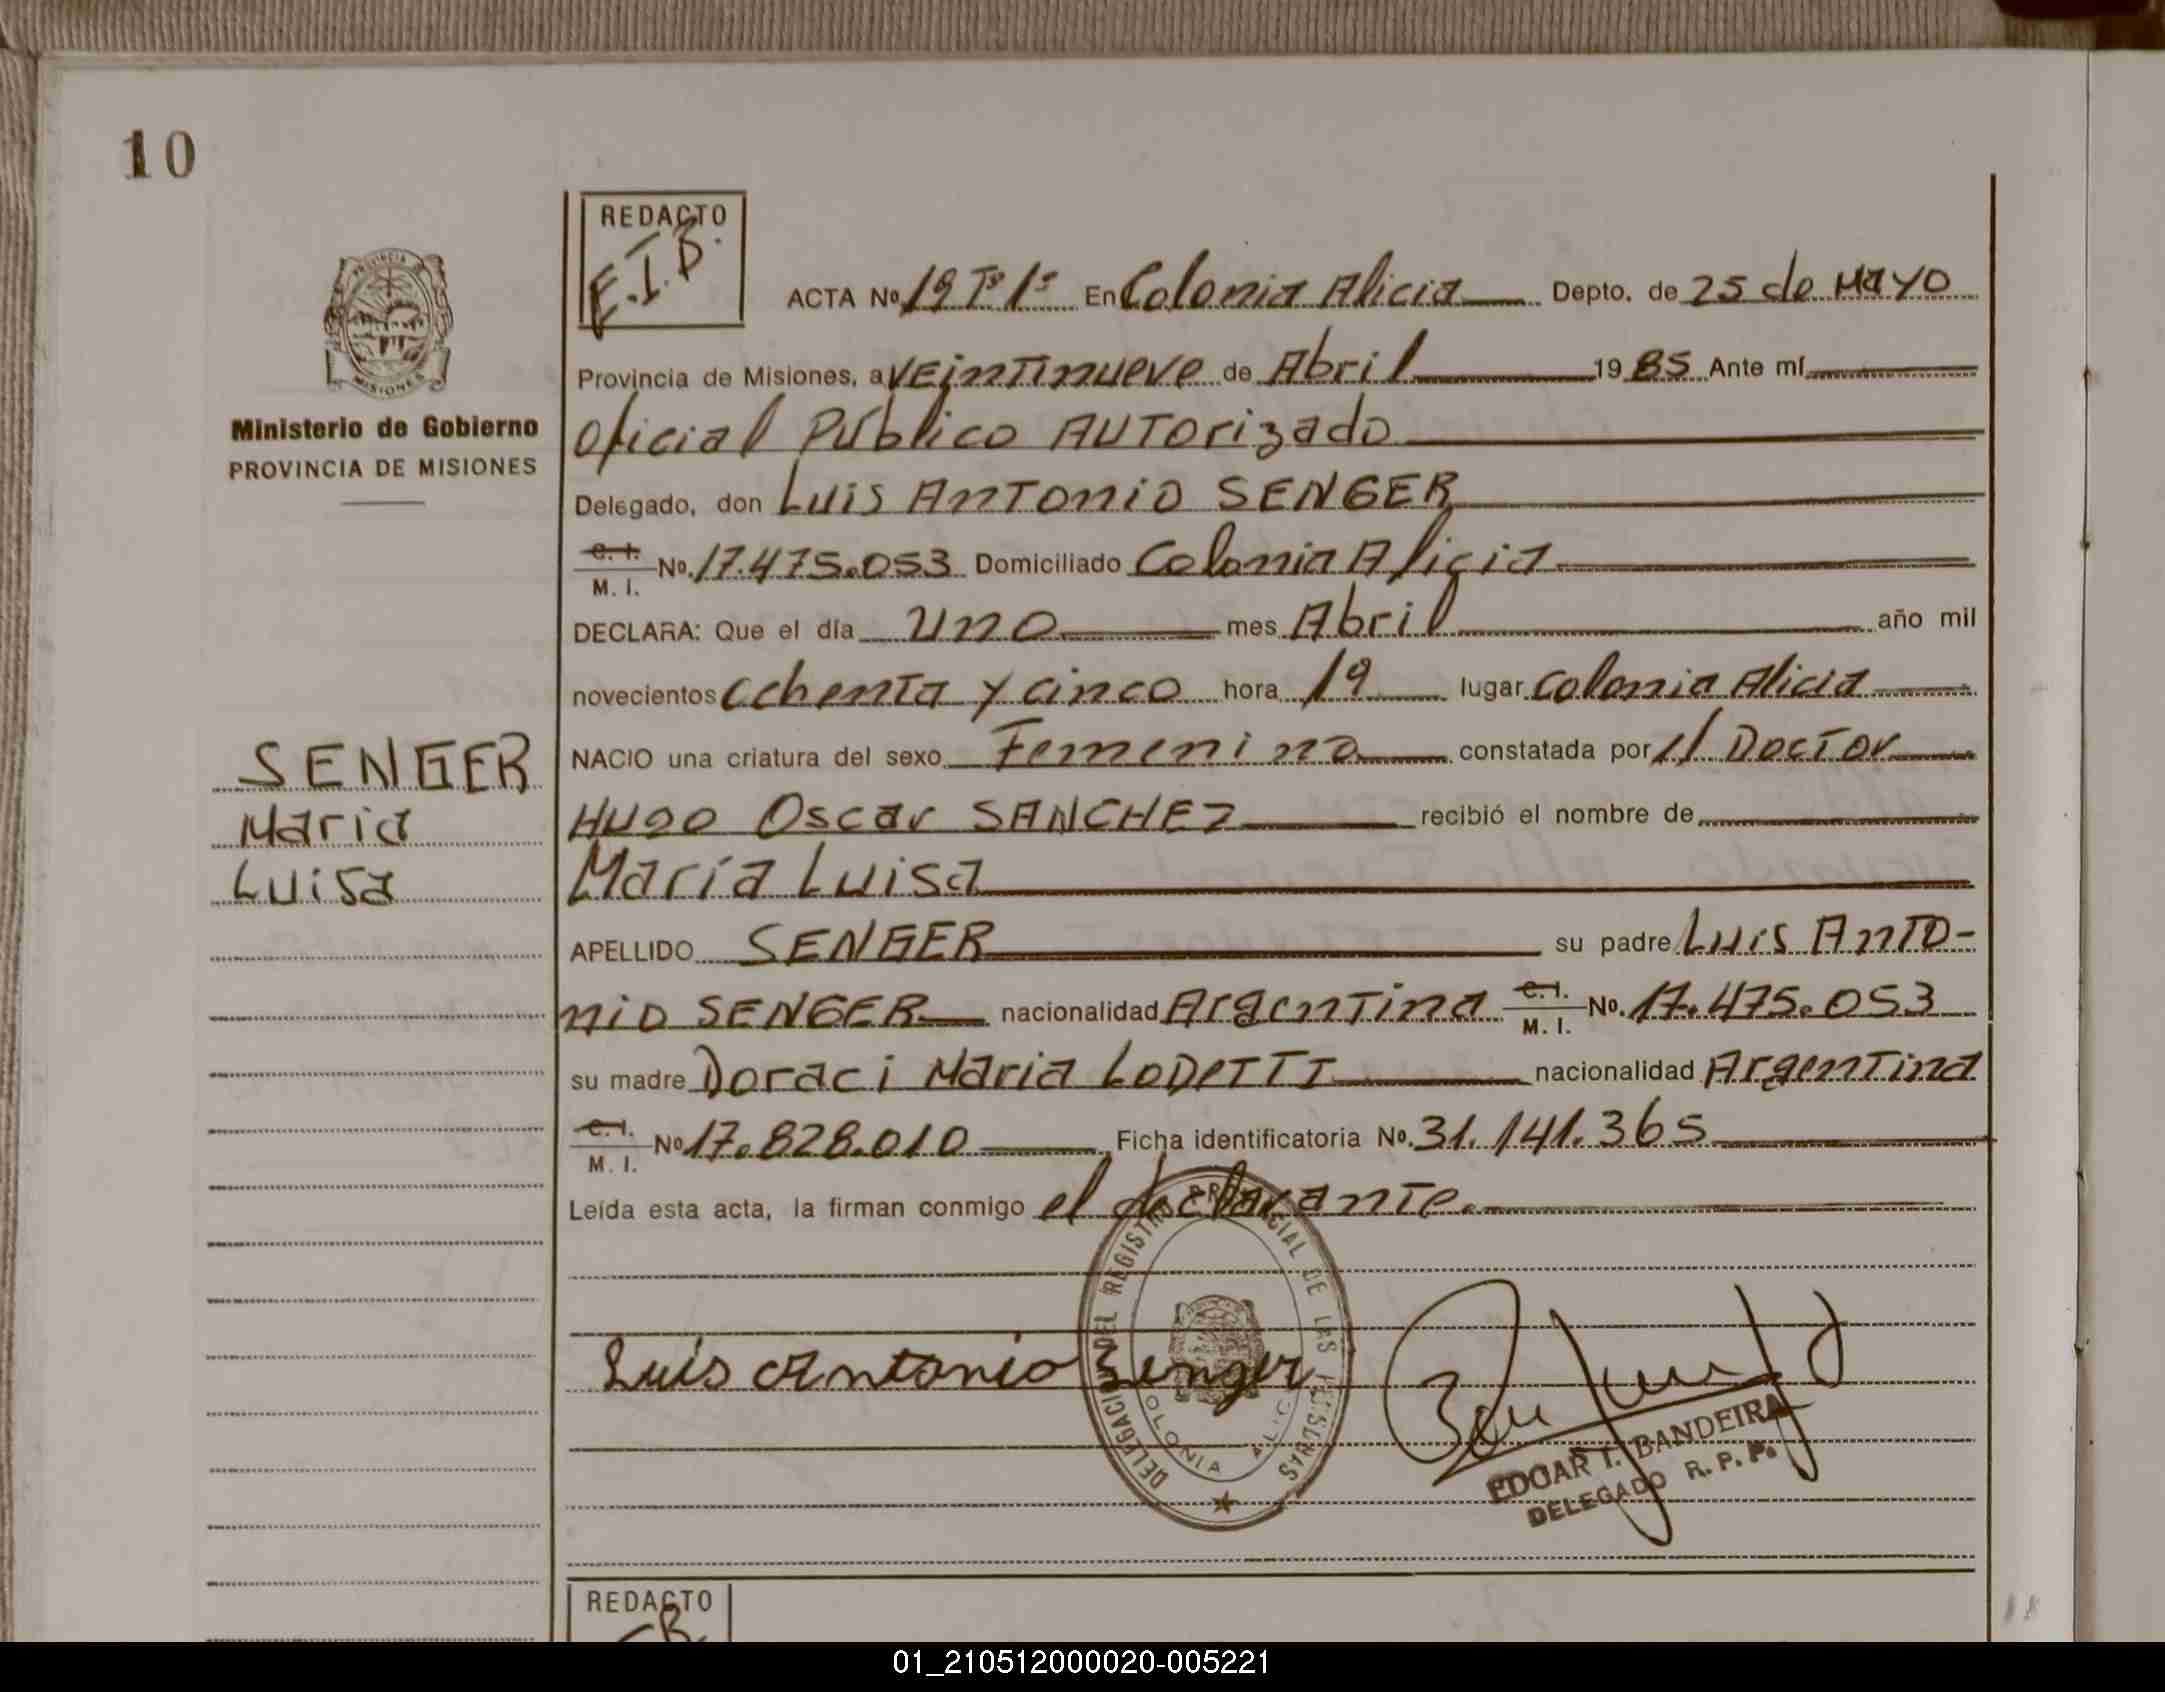 10
REDACTO
E.I.B.
ACTA Nº 19 Tº 1º En Colonia Alicia Depto. de 25 de Mayo
Provincia de Misiones, a veintinueve de Abril 1985 Ante mí
Oficial Público Autorizado
Delegado, don Luis Antonio SENGER
C. I. M. I. Nº. 17.475.053 Domiciliado Colonia Alicia
DECLARA: Que el día uno mes Abril año mil
novecientos ochenta y cinco hora 19 lugar Colonia Alicia
NACIO una criatura del sexo Femenino constatada por el Doctor
Hugo Oscar SANCHEZ recibió el nombre de
María Luisa
APELLIDO SENGER su padre Luis Anto-
nio SENGER nacionalidad Argentina C. I. M. I. Nº. 17.475.053
su madre Doraci Maria LODETTI nacionalidad Argentina
C. I. M. I. Nº 17.828.010 Ficha identificatoria Nº. 31.141.365
Leída esta acta, la firman conmigo el declarante.
PROVINCIA DE
MISIONES
Ministerio de Gobierno
PROVINCIA DE MISIONES
SENGER
Maria
Luisa
Luis Antonio Senger
DELEGACION DEL REGISTRO PROVINCIAL DE LAS PERSONAS
COLONIA ALICIA
EDGAR I. BANDEIRA
DELEGADO R. P. P.
REDACTO
01_210512000020-005221